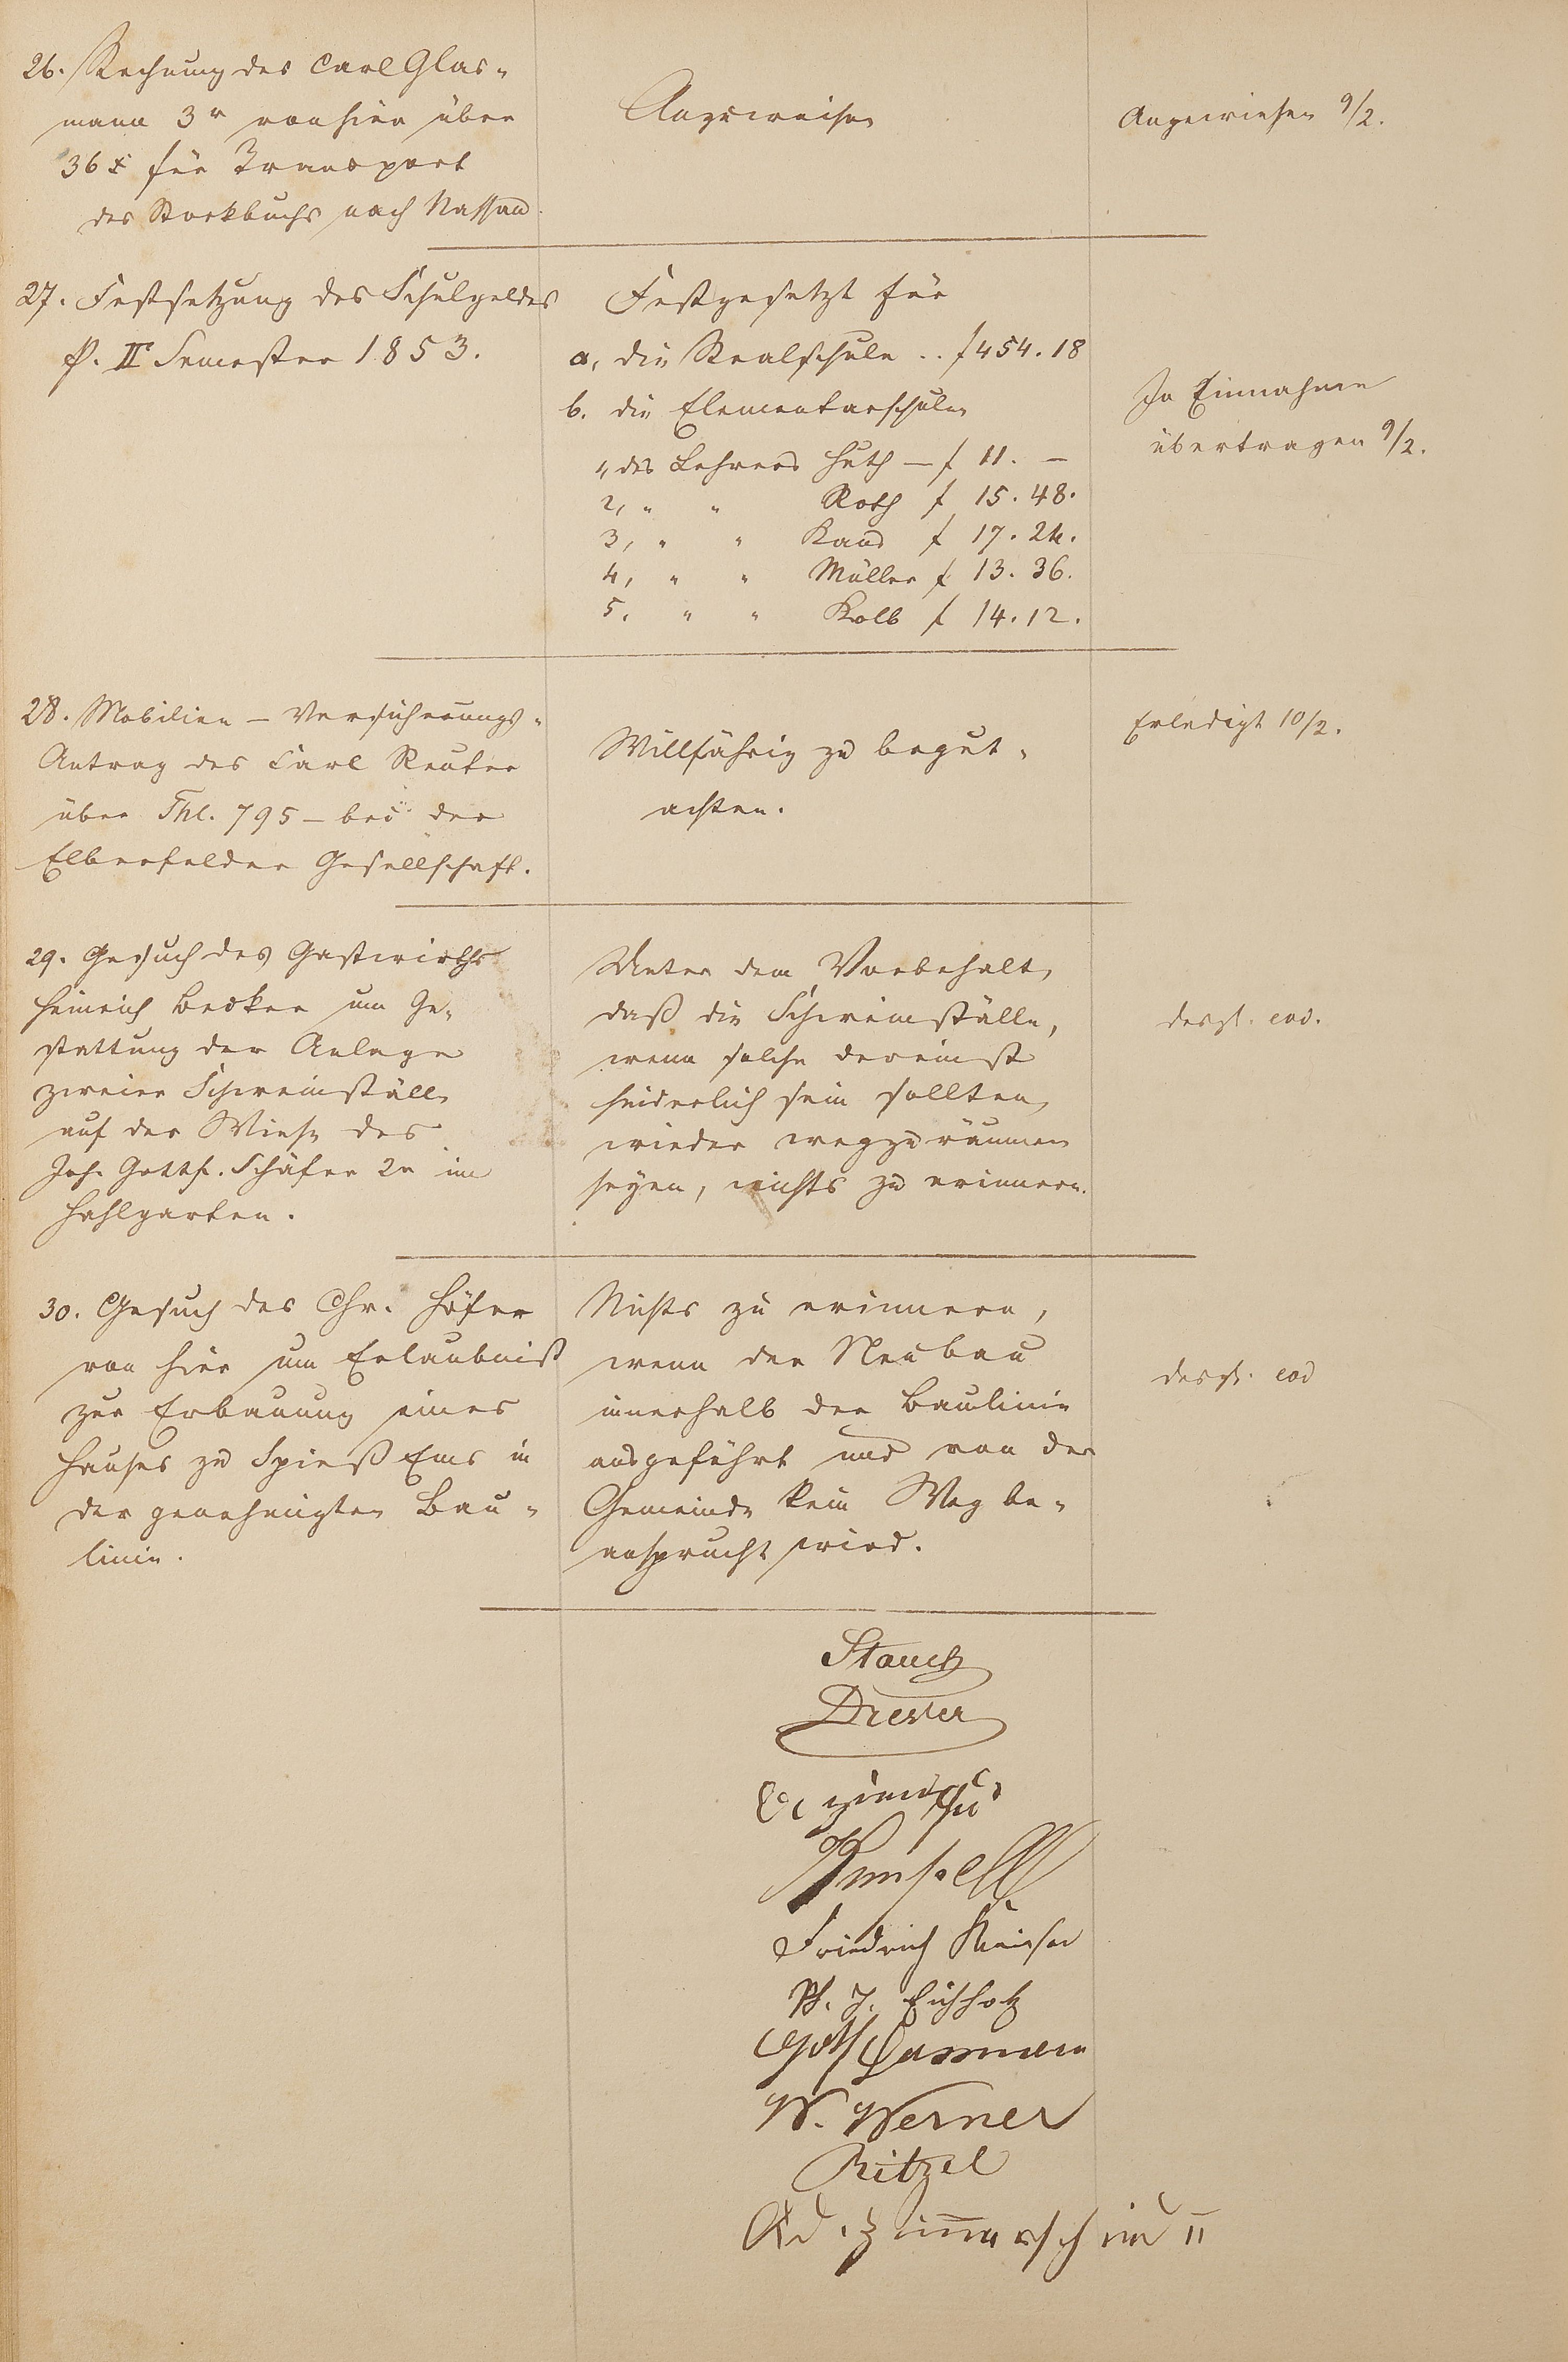 26. Rechnung des Carl Glas-
mann 3r von hier über
36 x für Transport
des Stockbuchs nach Nassau.
Angewiesen
Angewiesen 9/2.
27. Festsetzung des Schulgeldes
p. II Semester 1853.
Festgesetzt für
a, die Realschule .. f 454. 18
b. die Elementarschulen
1, des Lehrers Huth — f 11. —
2, " " Roth f 15. 48.
3, " " Kaus f 17. 24.
4, " " Müller f 13. 36.
5. " " Kolb f 14. 12.
In Einnahme
übertragen 9/2.
28. Mobilien - Versicherungs-
Antrag des Carl Reuter
über Thl. 795 - bei der
Elberfelder Gesellschaft.
Willfährig zu begut-
achten.
Erledigt 10/2.
29. Gesuch des Gastwirths
Heinrich Becker um Ge-
stattung der Anlage
zweier Schweinställe
auf der Wiese des
Joh. Gottfr. Schäfer 2n im
Hahlgarten.
Unter dem Vorbehalt,
daß die Schweinställe,
wenn solche dereinst
hinderlich sein sollten,
wieder wegzuräumen
seyen, nichts zu erinnern.
desgl. eod.
30. Gesuch des Chr. Höfer
von hier um Erlaubniß
zur Erbauung eines
Hauses zu Spieß Ems in
der genehmigten Bau-
linie.
Nichts zu erinnern,
wenn der Neubau
innerhalb der Baulinie
ausgeführt und von der
Gemeinde kein Weg be-
ansprucht wird.
desgl. eod
Stauch
Drever
Friedrich
Ph. J. Eichholz
W. Werner
Ritzel
Ad. Zimmerschied II